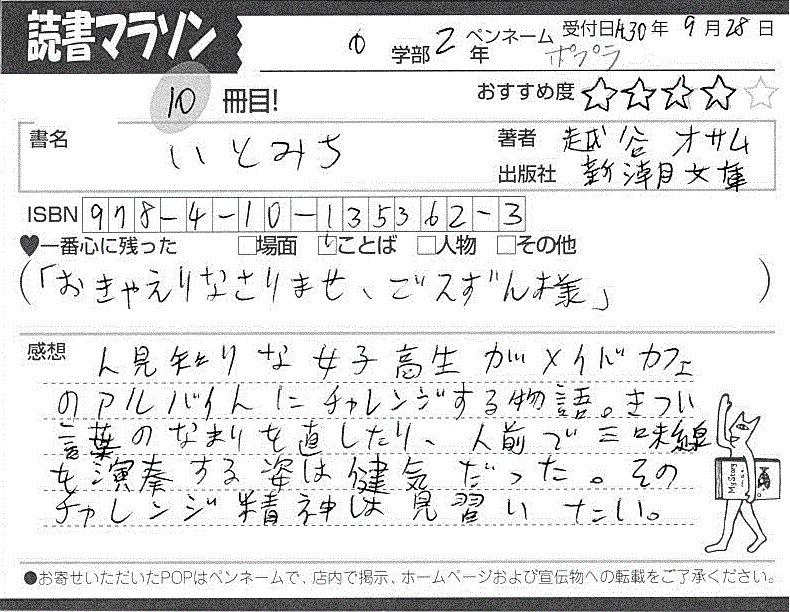 読書マラソン
学部 2年 ペンネーム ポプラ 受付日 H30年 9月28日
10 冊目! おすすめ度 ★★★★☆
書名 いとみち 著者 越谷 オサム
出版社 新潮文庫
ISBN 978-4-10-135362-3
♥一番心に残った □場面 ☑ことば □人物 □その他
(「おきゃえりなさりませ、ごスずん様」)
感想 人見知りな女子高生がメイドカフェ
のアルバイトにチャレンジする物語。きつい
言葉のなまりを直したり、人前で三味線
を演奏する姿は健気だった。その
チャレンジ精神は見習いたい。
●お寄せいただいたPOPはペンネームで、店内で掲示、ホームページおよび宣伝物への転載をご了承ください。